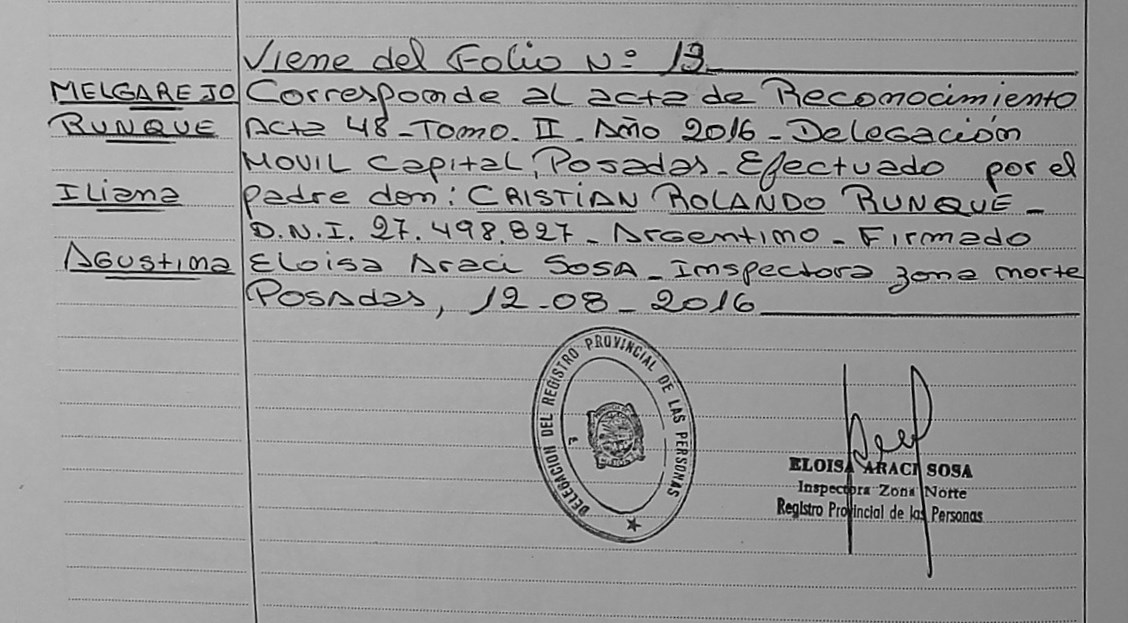 Viene del Folio Nº 13
MELGAREJO Corresponde al acta de Reconocimiento
RUNQUE Acta 48 - Tomo. II. Año 2016 - Delegación
MOVIL Capital, Posadas. Efectuado por el
Iliana padre don: CRISTIAN ROLANDO RUNQUE -
D.N.I. 27.498.827 - Argentino - Firmado
Agustina Eloisa Araci SOSA - Inspectora zona norte
Posadas, 12-08-2016
DELEGACION DEL REGISTRO PROVINCIAL DE LAS PERSONAS
ELOISA ARACI SOSA
Inspectora Zona Norte
Registro Provincial de las Personas